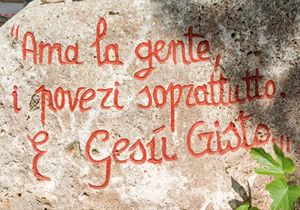 "Ama la gente,
i poveri soprattutto.
È Gesù Cristo..."